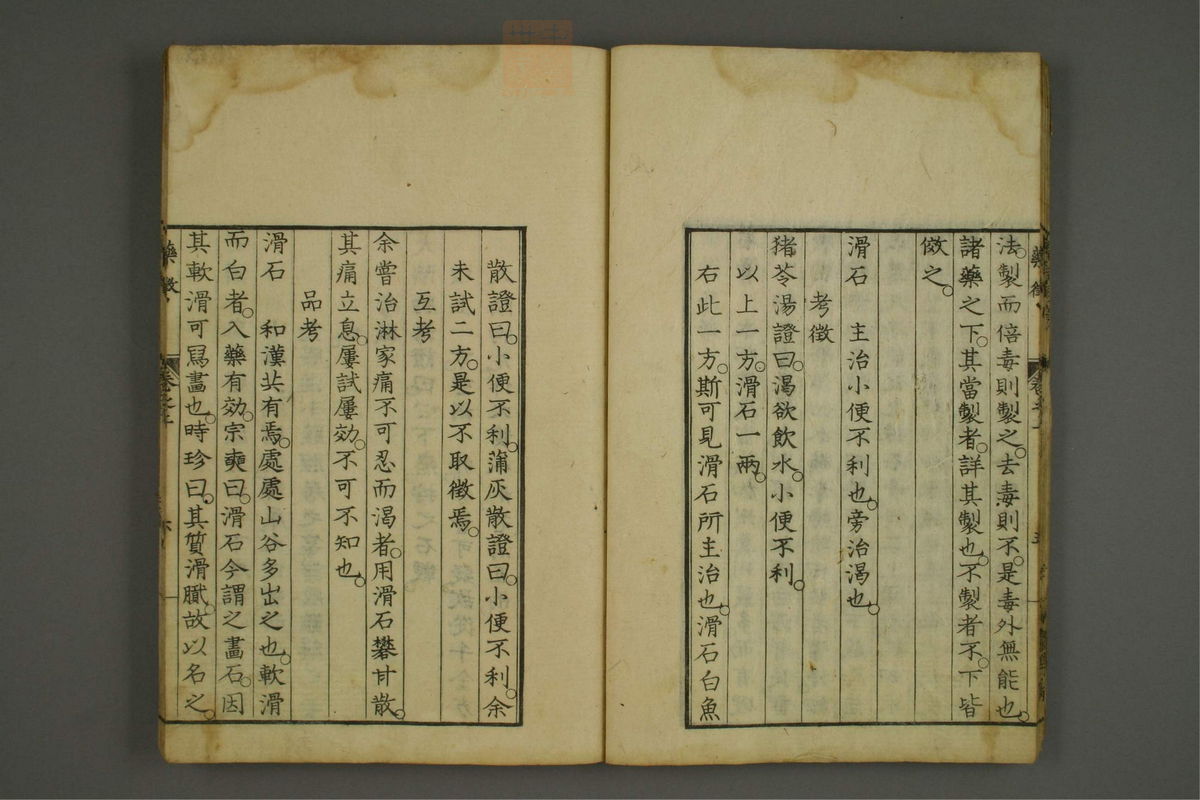 法製而倍毒則製之。去毒則不。是毒外無能也。
諸藥之下。其當製者。詳其製也。不製者不。下皆
倣之。
滑石　主治小便不利也。旁治渴也。
考徵
豬苓湯證曰。渴欲飲水。小便不利。
以上一方。滑石一兩。
右此一方。斯可見滑石所主治也。滑石白魚
散證曰。小便不利。蒲灰散證曰。小便不利。余
未試二方。是以不取徵焉。
互考
余嘗治淋家痛不可忍而渴者。用滑石礬甘散。
其痛立息。屢試屢効。不可不知也。
品考
滑石　和漢共有焉。處處山谷多出之也。軟滑
而白者。入藥有効。宗奭曰。滑石今謂之畫石。因
其軟滑可寫畫也。時珍曰。其質滑膩。故以名之。
藥徵